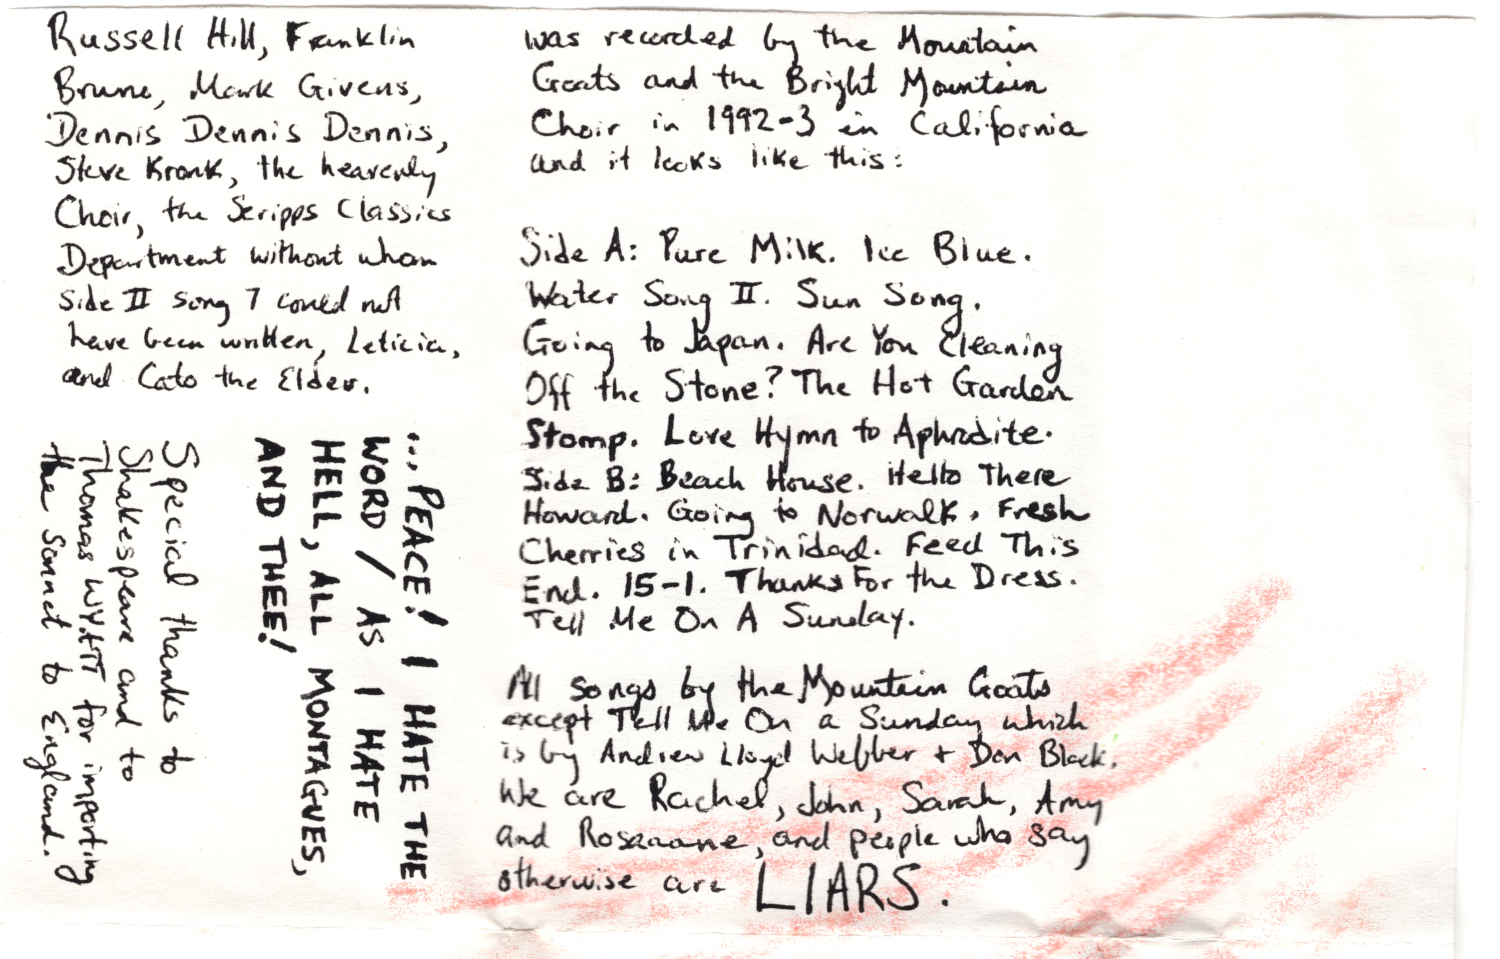 Russell Hill, Franklin
Bruno, Mark Givens,
Dennis Dennis Dennis,
Steve Kronk, the heavenly
Choir, the Scripps Classics
Department without whom
Side II song 7 could not
have been written, Leticia,
and Cato the Elder.
...PEACE! I HATE THE
WORD / AS I HATE
HELL, ALL MONTAGUES,
AND THEE!
Special thanks to
Shakespeare and to
Thomas WYATT for importing
the Sonnet to England.
was recorded by the Mountain
Goats and the Bright Mountain
Choir in 1992-3 in California
and it looks like this:
Side A: Pure Milk. Ice Blue.
Water Song II. Sun Song.
Going to Japan. Are You Cleaning
Off the Stone? The Hot Garden
Stomp. Love Hymn to Aphrodite.
Side B: Beach House. Hello There
Howard. Going to Norwalk. Fresh
Cherries in Trinidad. Feed This
End. 15-1. Thanks For the Dress.
Tell Me On A Sunday.
All songs by the Mountain Goats
except Tell Me On a Sunday which
is by Andrew Lloyd Webber + Don Black.
We are Rachel, John, Sarah, Amy
and Roseanne, and people who say
otherwise are LIARS.